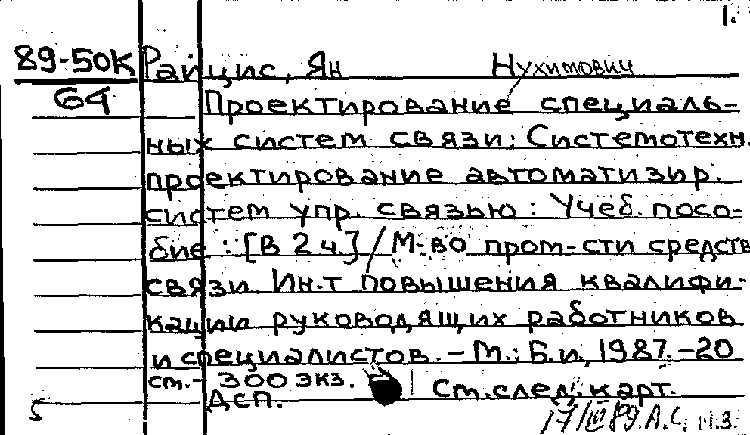 1.
89-50К Райцис, Ян Нухимович
64 Проектирование специаль-
ных систем связи: Системотехн.
проектирование автоматизир.
систем упр. связью : Учеб. посо-
бие : [В 2 ч.] / М-во пром-сти средств
связи. Ин-т повышения квалифи-
кации руководящих работников
и специалистов. - М.: Б.и., 1987. -20
см. - 300 экз. См. след. карт.
ДСП.
17/III 89. А.С.